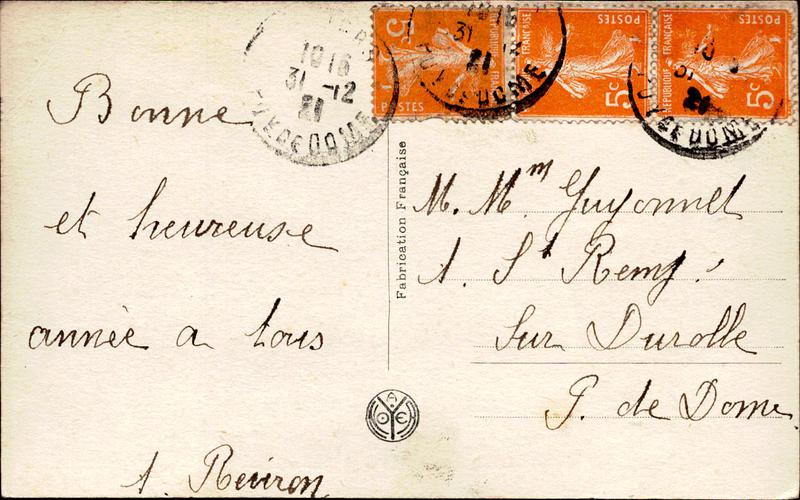 5c
POSTES
RÉPUBLIQUE FRANÇAISE
POSTES
5c
RÉPUBLIQUE FRANÇAISE
POSTES
5c
1015
31 -12
21
PUY DE DOME
31 12
21
DOME
21
DE DOME
Fabrication Française
Bonne
et heureuse
année a tous
A. Reviron
M. Mm Guyonnet
A. St Remy
Sur Durolle
P. de Dome